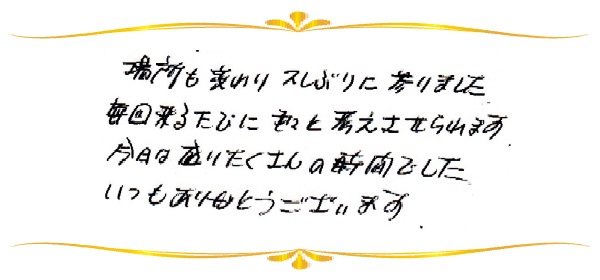 場所も変わり久しぶりに参りました
毎回来るたびに色々と考えさせられます
今日は盛りだくさんの時間でした
いつもありがとうございます